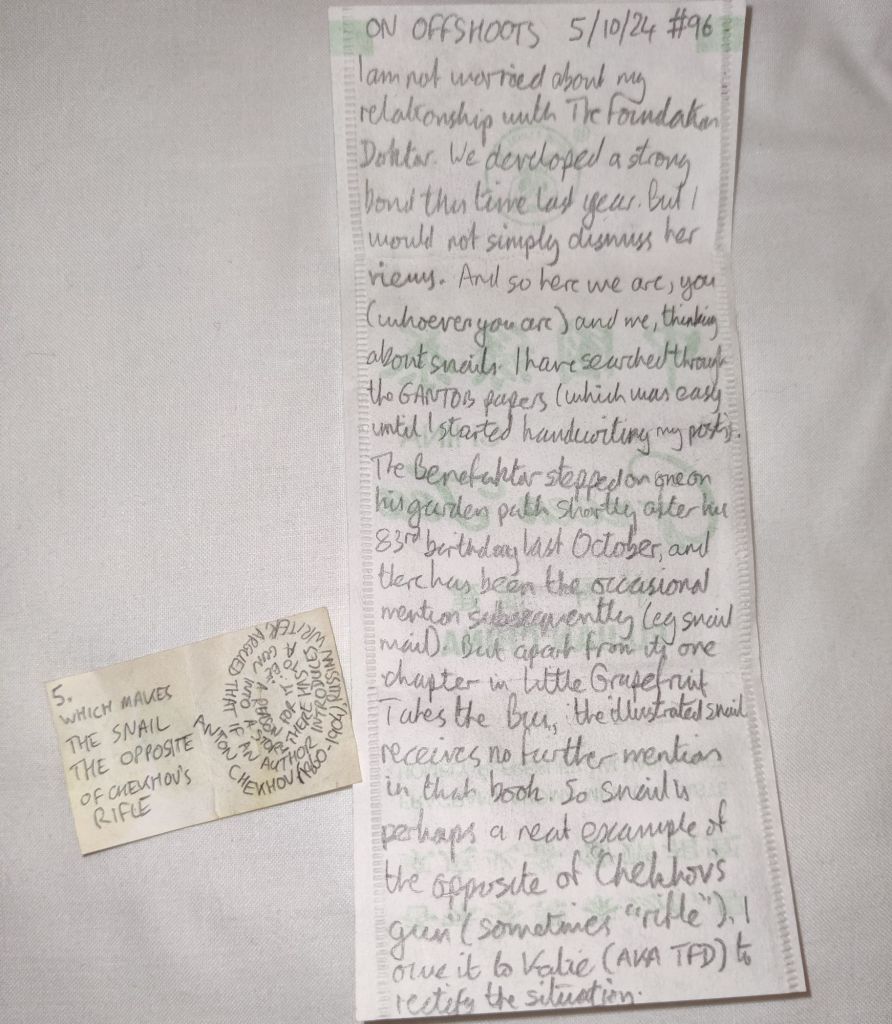 ON OFFSHOOTS 5/10/24 #96
I am not worried about my
relationship with The Foundation
Doktor. We developed a strong
bond this time last year. But I
would not simply dismiss her
views. And so here we are, you
(whoever you are) and me, thinking
about snails. I have searched through
the GANTOB papers (which was easy
until I started handwriting my posts).
The Benefaktor stepped on one on
his garden path shortly after his
83rd birthday last October, and
there has been the occasional
mention subsequently (eg snail
mail). But apart from its one
chapter in Little Grapefruit
Takes the Bus, the illustrated snail
receives no further mention
in that book. So snail is
perhaps a neat example of
the opposite of Chekhovs
gun (sometimes "rifle"). I
owe it to Katie (AKA TFD) to
rectify the situation.
5.
WHICH MAKES
THE SNAIL
THE OPPOSITE
OF CHEKHOV'S
RIFLE
ANTON CHEKHOV (1860-1904) (RUSSIAN
WRITER, ARGUED THAT IF AN AUTHOR INTRODUCES
A GUN INTO A STORY THERE HAS
TO BE A REASON FOR IT